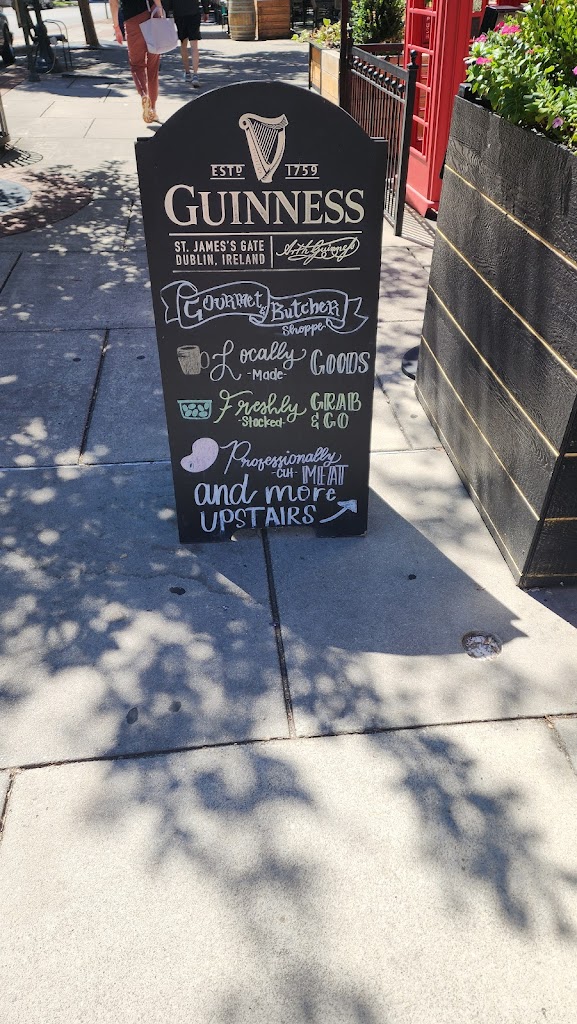 ESTD 1759
GUINNESS
ST. JAMES'S GATE
DUBLIN, IRELAND
Arth Guinness
Gourmet & Butcher
Shoppe
Locally
-Made-
GOODS
Freshly
-Stocked-
GRAB
& GO
Professionally
-CUt- MEAT
and more
UPSTAIRS